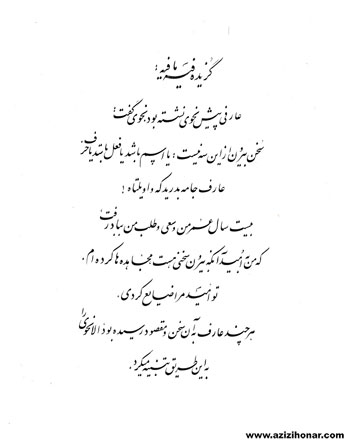 گزیده فیه ما فیه:
عارفی پیش نحوی نشسته بود، نحوی گفت:
سخن بیرون از این سه نیست: یا اسم باشد یا فعل باشد یا حرف
عارف جامه بدرید که واویلتاه!
بیست سال عمر من و سعی و طلب من بباد رفت
که من به امید آنکه بیرون سخنی هست مجاهده ها کرده ام.
تو امید مرا ضایع کردی،
هر چند عارف به آن سخن و مقصود رسیده بود الا نحوی را
به این طریق تنبیه میکرد.
www.azizihonar.com